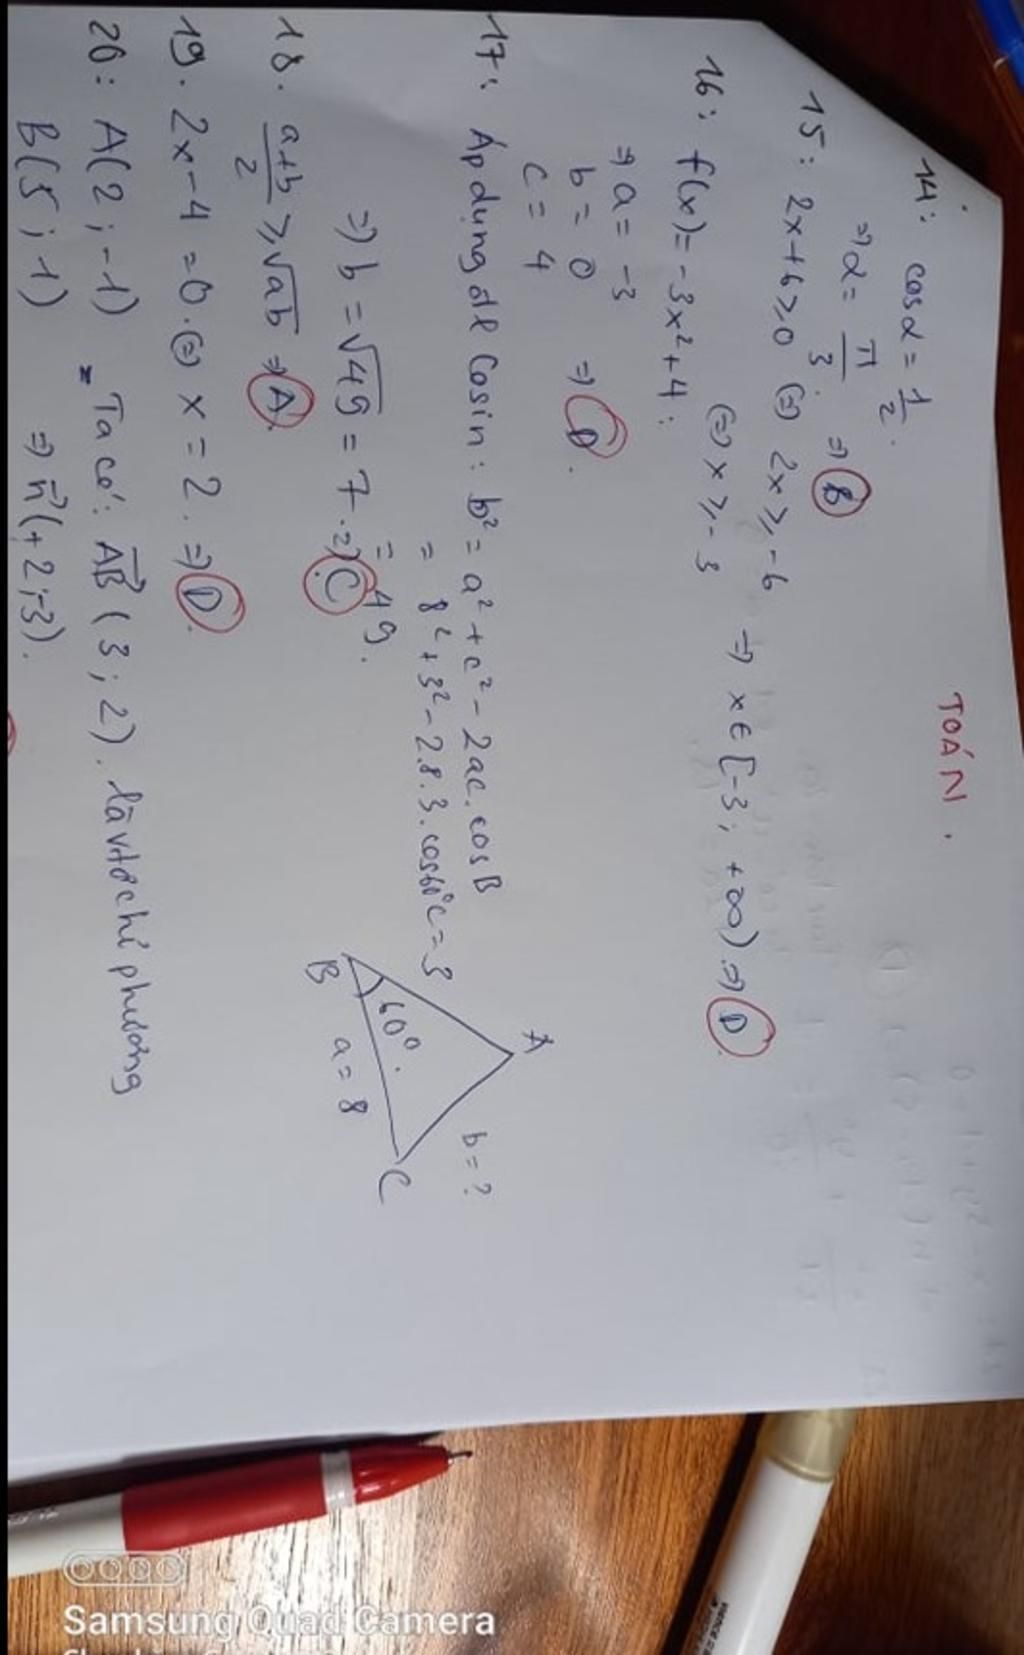 TOÁN.
14: cosα = 1/2.
⇒ α = π/3. ⇒ B
15: 2x+6 ≥ 0 ⇔ 2x ≥ -6
⇔ x ≥ -3 ⇒ x ∈ [-3; +∞) ⇒ D
16: f(x) = -3x² + 4:
⇒ a = -3
b = 0 ⇒ D.
c = 4
17: Áp dụng đl Cosin: b² = a² + c² - 2ac.cosB
= 8² + 3² - 2.8.3.cos60°
= 49.
⇒ b = √49 = 7. ⇒ C
A
b = ?
c = 3
60°
B
a = 8
C
18. a+b/2 ≥ √ab ⇒ A.
19. 2x-4 = 0. ⇔ x = 2. ⇒ D.
20: A(2; -1) Ta có: AB→ (3; 2). là vtơ chỉ phương
B(5; 1) ⇒ n→(+2; -3).
Samsung Quad Camera